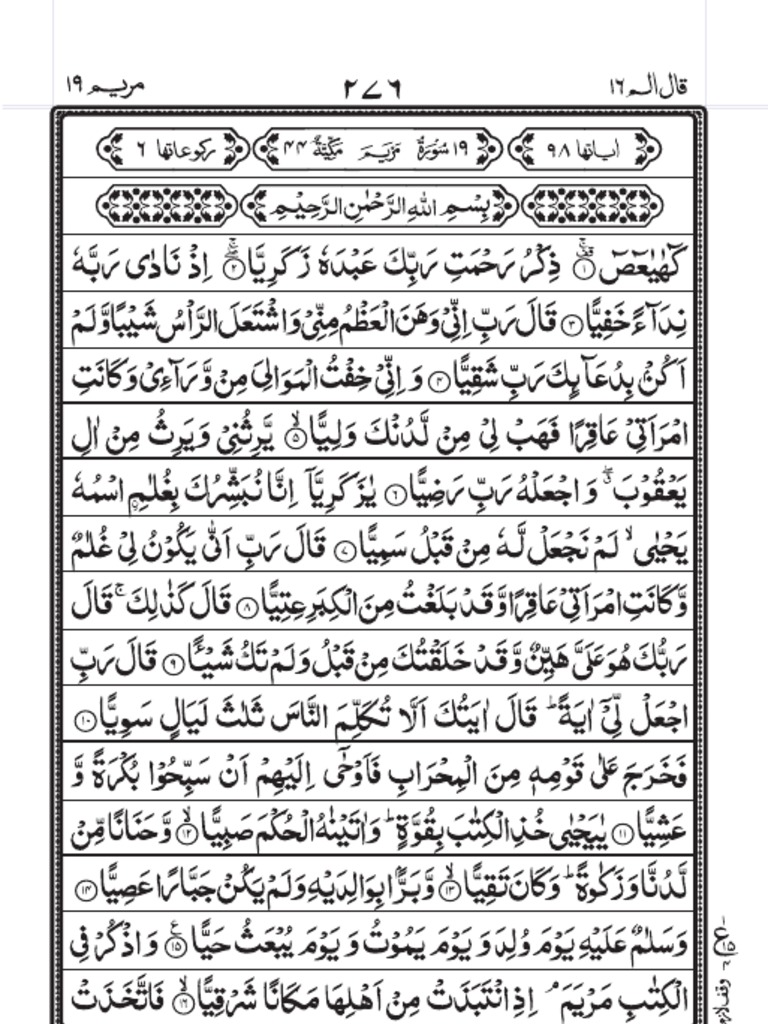 قال الم ١٦ ٢٧٦ مريم ١٩
اٰیاتها ٩٨ ١٩ سُوْرَةُ مَرْیَمَ مَكِّیَّةٌ ٤٤ ركوعاتها ٦
بِسْمِ اللّٰهِ الرَّحْمٰنِ الرَّحِیْمِ
كٓهٰیٰعٓصٓ ۚ۝۱ ذِكْرُ رَحْمَتِ رَبِّكَ عَبْدَهٗ زَكَرِیَّا ۖۚ۝۲ اِذْ نَادٰى رَبَّهٗ
نِدَآءً خَفِیًّا ۝۳ قَالَ رَبِّ اِنِّیْ وَهَنَ الْعَظْمُ مِنِّیْ وَاشْتَعَلَ الرَّاْسُ شَیْبًا وَّلَمْ
اَكُنْۢ بِدُعَآىِٕكَ رَبِّ شَقِیًّا ۝۴ وَ اِنِّیْ خِفْتُ الْمَوَالِیَ مِنْ وَّرَآءِیْ وَ كَانَتِ
امْرَاَتِیْ عَاقِرًا فَهَبْ لِیْ مِنْ لَّدُنْكَ وَلِیًّا ۙ۝۵ یَّرِثُنِیْ وَ یَرِثُ مِنْ اٰلِ
یَعْقُوْبَ ۖۗ وَ اجْعَلْهُ رَبِّ رَضِیًّا ۝۶ یٰزَكَرِیَّاۤ اِنَّا نُبَشِّرُكَ بِغُلٰمِ ِ۟اسْمُهٗ
یَحْیٰى ۙ لَمْ نَجْعَلْ لَّهٗ مِنْ قَبْلُ سَمِیًّا ۝۷ قَالَ رَبِّ اَنّٰى یَكُوْنُ لِیْ غُلٰمٌ
وَّ كَانَتِ امْرَاَتِیْ عَاقِرًا وَّ قَدْ بَلَغْتُ مِنَ الْكِبَرِ عِتِیًّا ۝۸ قَالَ كَذٰلِكَ ۚ قَالَ
رَبُّكَ هُوَ عَلَیَّ هَیِّنٌ وَّ قَدْ خَلَقْتُكَ مِنْ قَبْلُ وَ لَمْ تَكُ شَیْـًٔا ۝۹ قَالَ رَبِّ
اجْعَلْ لِّیْۤ اٰیَةً ؕ قَالَ اٰیَتُكَ اَلَّا تُكَلِّمَ النَّاسَ ثَلٰثَ لَیَالٍ سَوِیًّا ۝۱۰
فَخَرَجَ عَلٰى قَوْمِهٖ مِنَ الْمِحْرَابِ فَاَوْحٰۤى اِلَیْهِمْ اَنْ سَبِّحُوْا بُكْرَةً وَّ
عَشِیًّا ۝۱۱ یٰیَحْیٰى خُذِ الْكِتٰبَ بِقُوَّةٍ ؕ وَ اٰتَیْنٰهُ الْحُكْمَ صَبِیًّا ۙ۝۱۲ وَّ حَنَانًا مِّنْ
لَّدُنَّا وَ زَكٰوةً ؕ وَ كَانَ تَقِیًّا ۙ۝۱۳ وَّ بَرًّۢا بِوَالِدَیْهِ وَ لَمْ یَكُنْ جَبَّارًا عَصِیًّا ۝۱۴
وَ سَلٰمٌ عَلَیْهِ یَوْمَ وُلِدَ وَ یَوْمَ یَمُوْتُ وَ یَوْمَ یُبْعَثُ حَیًّا ۠۝۱۵ وَ اذْكُرْ فِی
الْكِتٰبِ مَرْیَمَ ۘ اِذِ انْتَبَذَتْ مِنْ اَهْلِهَا مَكَانًا شَرْقِیًّا ۙ۝۱۶ فَاتَّخَذَتْ